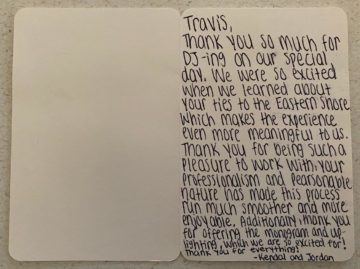 Travis,
Thank you so much for
DJ-ing on our special
day. We were so excited
when we learned about
your ties to the Eastern Shore
which makes the experience
even more meaningful to us.
Thank you for being such a
pleasure to work with; your
professionalism and personable
nature has made this process
run much smoother and more
enjoyable. Additionally, thank you
for offering the monogram and up-
lighting, which we are so excited for!
Thank you for everything!
-Kendal and Jordan